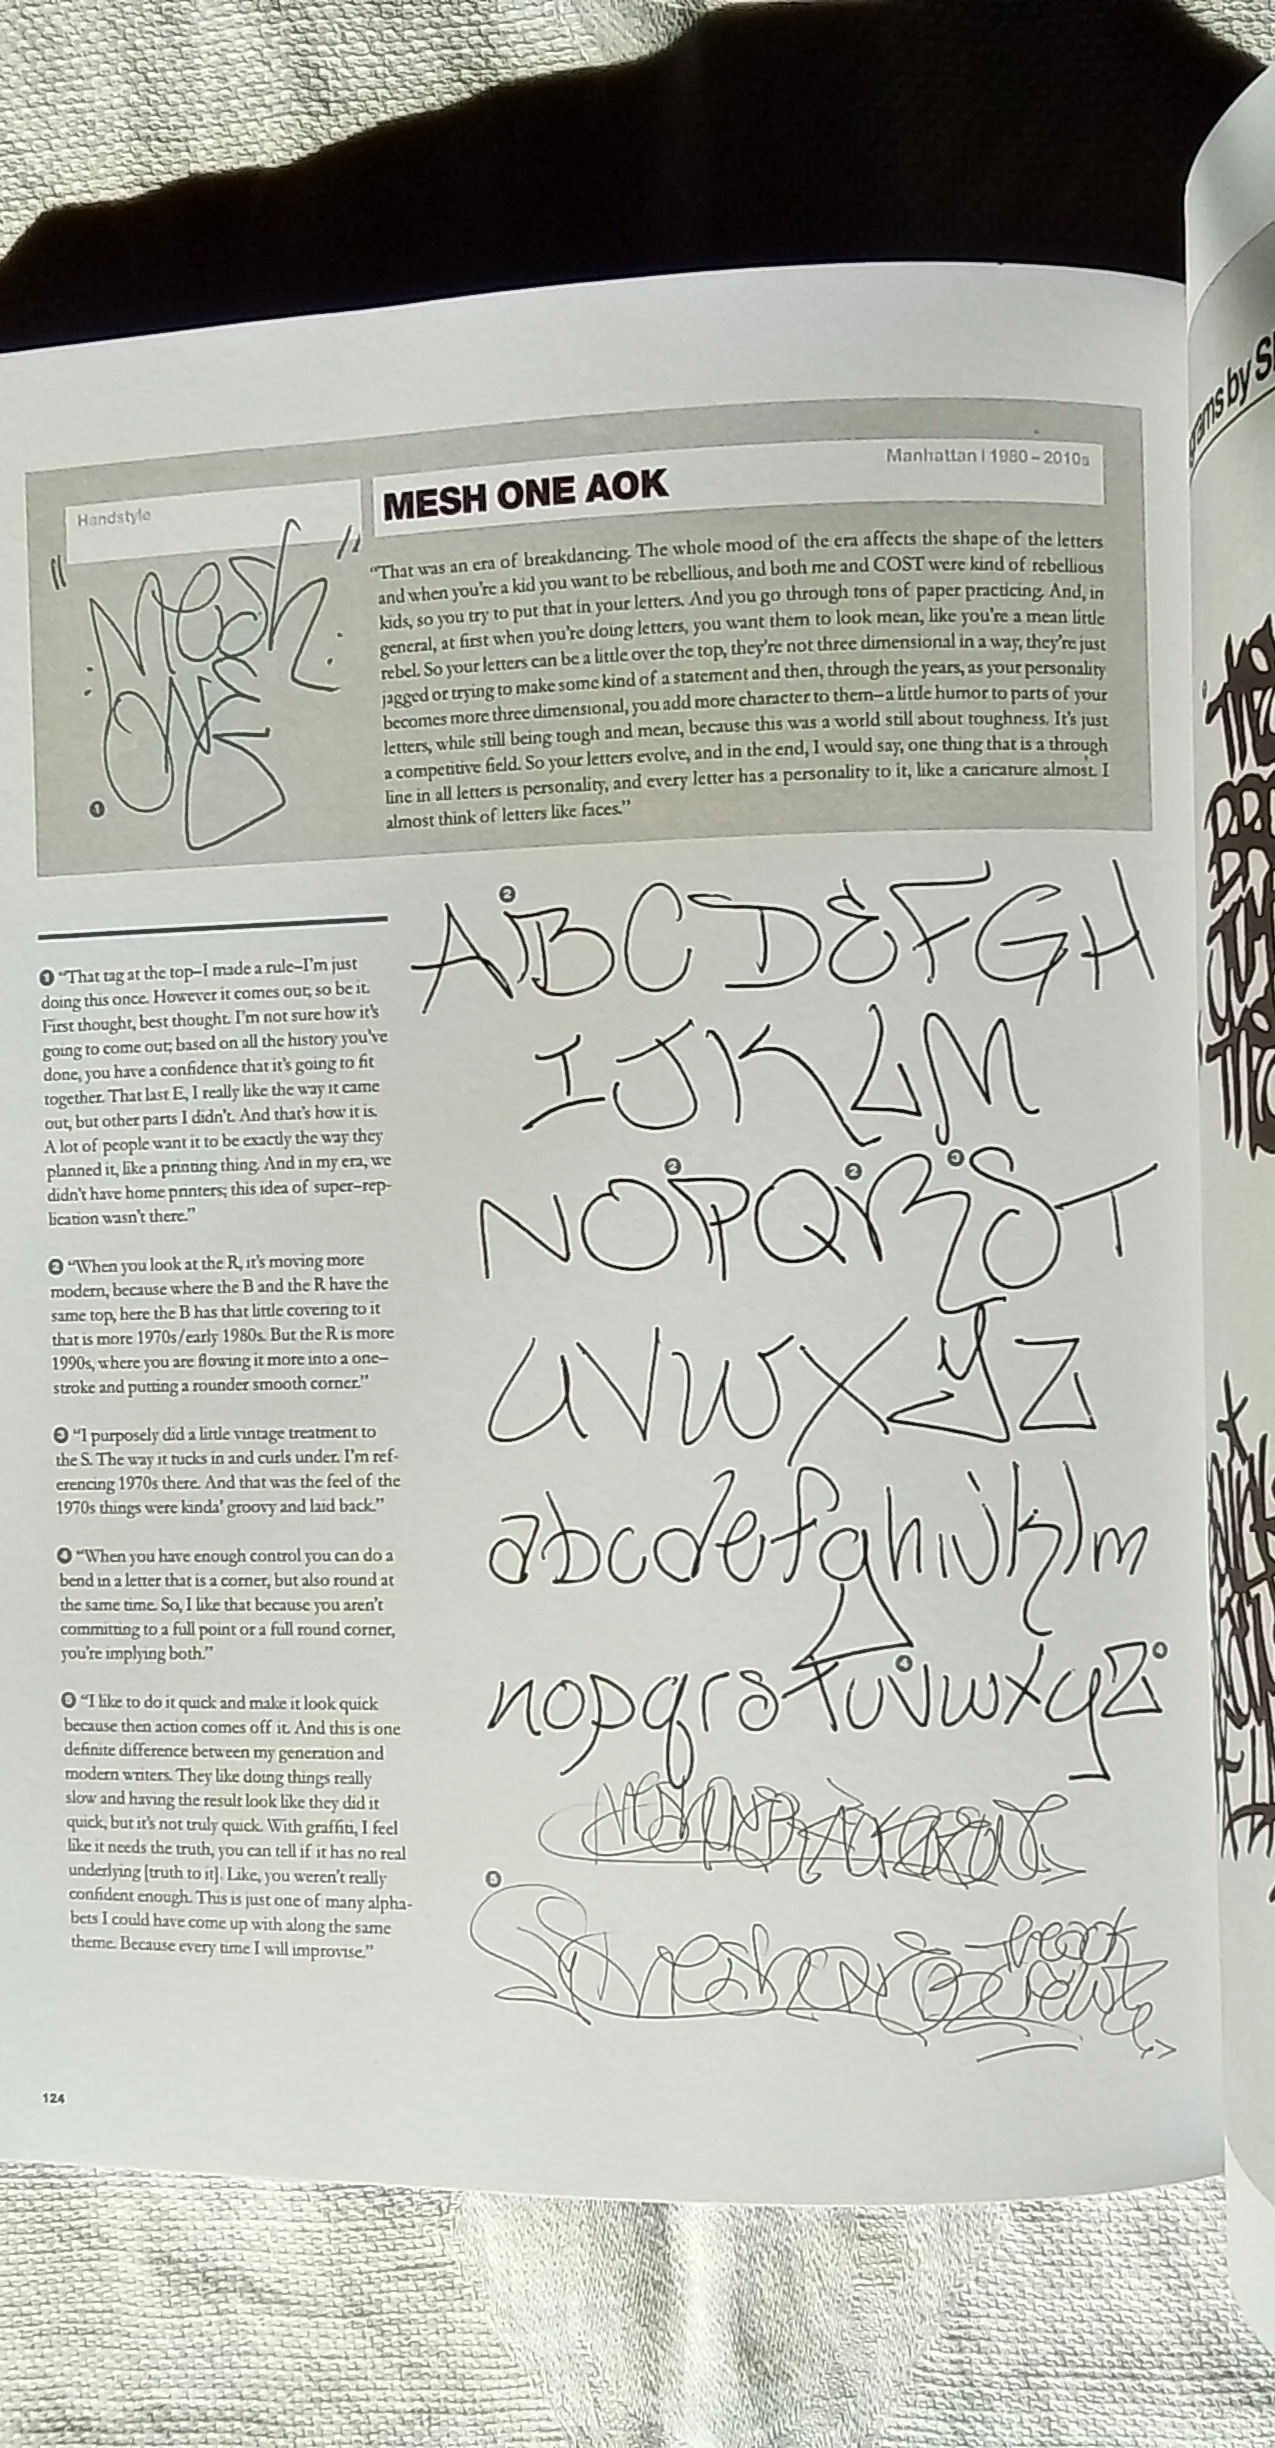 Handstyle
"MESH
ONE"
1
MESH ONE AOK
Manhattan | 1980–2010s
"That was an era of breakdancing. The whole mood of the era affects the shape of the letters
and when you're a kid you want to be rebellious, and both me and COST were kind of rebellious
kids, so you try to put that in your letters. And you go through tons of paper practicing. And, in
general, at first when you're doing letters, you want them to look mean, like you're a mean little
rebel. So your letters can be a little over the top, they're not three dimensional in a way, they're just
jagged or trying to make some kind of a statement and then, through the years, as your personality
becomes more three dimensional, you add more character to them–a little humor to parts of your
letters, while still being tough and mean, because this was a world still about toughness. It's just
a competitive field. So your letters evolve, and in the end, I would say, one thing that is a through
line in all letters is personality, and every letter has a personality to it, like a caricature almost. I
almost think of letters like faces."
1 "That tag at the top–I made a rule–I'm just
doing this once. However it comes out, so be it.
First thought, best thought. I'm not sure how it's
going to come out; based on all the history you've
done, you have a confidence that it's going to fit
together. That last E, I really like the way it came
out, but other parts I didn't. And that's how it is.
A lot of people want it to be exactly the way they
planned it, like a printing thing. And in my era, we
didn't have home printers; this idea of super-rep-
lication wasn't there."
2 "When you look at the R, it's moving more
modern, because where the B and the R have the
same top, here the B has that little covering to it
that is more 1970s/early 1980s. But the R is more
1990s, where you are flowing it more into a one-
stroke and putting a rounder smooth corner."
3 "I purposely did a little vintage treatment to
the S. The way it tucks in and curls under. I'm ref-
erencing 1970s there. And that was the feel of the
1970s things were kinda' groovy and laid back."
4 "When you have enough control you can do a
bend in a letter that is a corner, but also round at
the same time. So, I like that because you aren't
committing to a full point or a full round corner,
you're implying both."
5 "I like to do it quick and make it look quick
because then action comes off it. And this is one
definite difference between my generation and
modern writers. They like doing things really
slow and having the result look like they did it
quick, but it's not truly quick. With graffiti, I feel
like it needs the truth, you can tell if it has no real
underlying [truth to it]. Like, you weren't really
confident enough. This is just one of many alpha-
bets I could have come up with along the same
theme. Because every time I will improvise."
2
A B C D E F G H
I J K L M
2 2 3
N O P Q R S T
U V W X Y Z
a b c d e f g h i j k l m
4 4
n o p q r s t u v w x y z
5
124
grams by